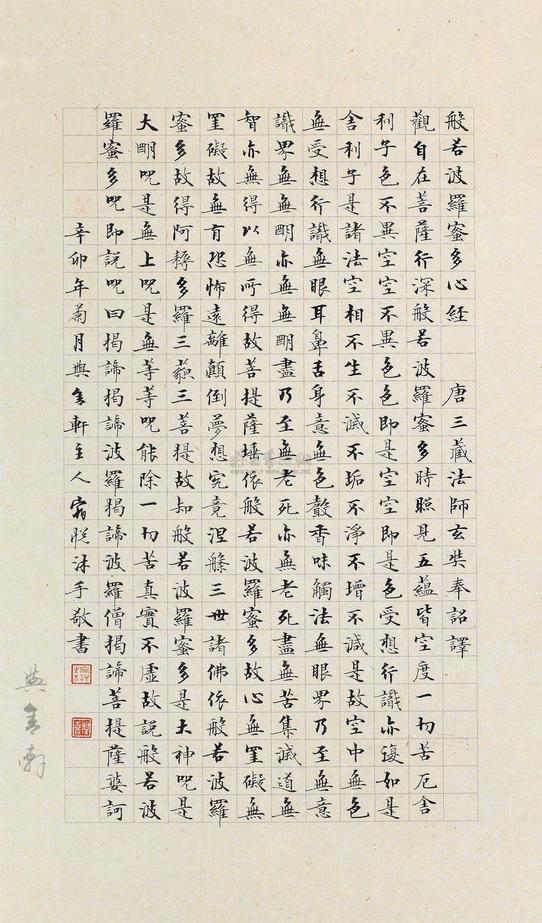 般若波羅蜜多心經 唐三藏法師玄奘奉詔譯
觀自在菩薩行深般若波羅蜜多時照見五蘊皆空度一切苦厄舍
利子色不異空空不異色色即是空空即是色受想行識亦復如是
舍利子是諸法空相不生不滅不垢不淨不增不減是故空中無色
無受想行識無眼耳鼻舌身意無色聲香味觸法無眼界乃至無意
識界無無明亦無無明盡乃至無老死亦無老死盡無苦集滅道無
智亦無得以無所得故菩提薩埵依般若波羅蜜多故心無罣礙無
罣礙故無有恐怖遠離顛倒夢想究竟涅槃三世諸佛依般若波羅
蜜多故得阿耨多羅三藐三菩提故知般若波羅蜜多是大神呪是
大明呪是無上呪是無等等呪能除一切苦真實不虛故說般若波
羅蜜多呪即說呪曰揭諦揭諦波羅揭諦波羅僧揭諦菩提薩婆訶
辛卯年菊月軒主人沐手敬書
軒